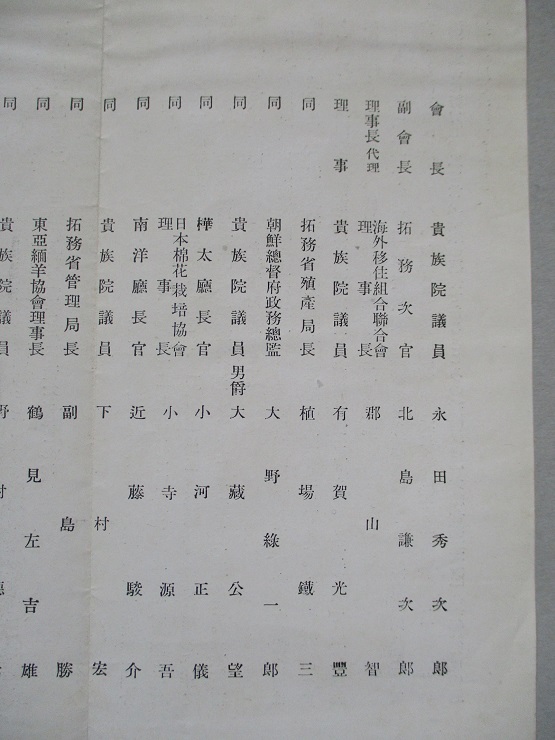 會長 貴族院議員 永田秀次郎
副會長 拓務次官 北島謙次郎
理事長代理 海外移住組合聯合會理事長 郡山智
理事 貴族院議員 有賀光豐
同 拓務省殖產局長 植場鐵三
同 朝鮮總督府政務總監 大野綠一郎
同 貴族院議員男爵 大藏公望
同 樺太廳長官 小河正儀
同 日本棉花栽培協會理事長 小寺源吾
同 南洋廳長官 近藤駿介
同 貴族院議員 下村宏
同 拓務省管理局長 副島勝
同 東亞緬羊協會理事長 鶴見左吉雄
同 貴族院議員